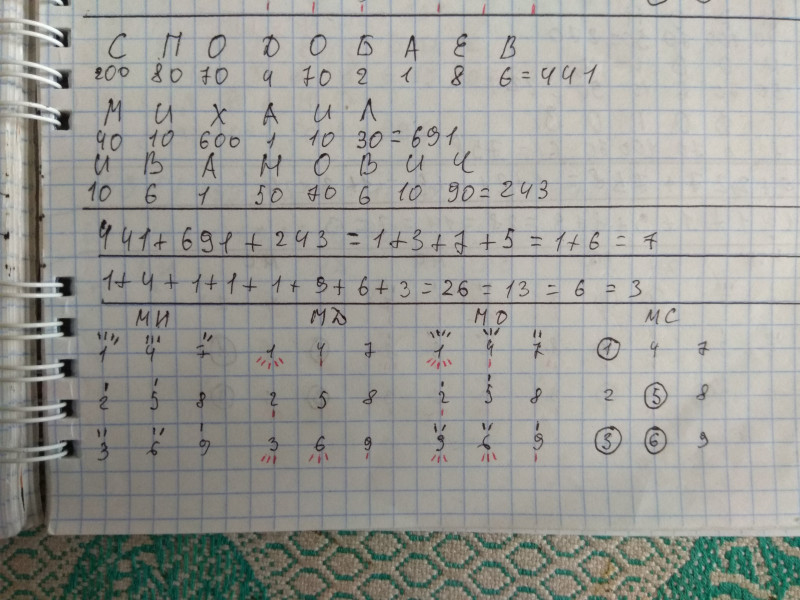 С П О Д О Б А Е В
200 80 70 4 70 2 1 8 6 = 441
М И Х А И Л
40 10 600 1 10 30 = 691
И В А Н О В И Ч
10 6 1 50 70 6 10 90 = 243
441 + 691 + 243 = 1+3+7+5 = 1+6 = 7
1+4+1+1+1+9+6+3 = 26 = 13 = 6 = 3
МИ МД МО МС
1 4 7 1 4 7 1 4 7 1 4 7
2 5 8 2 5 8 2 5 8 2 5 8
3 6 9 3 6 9 3 6 9 3 6 9